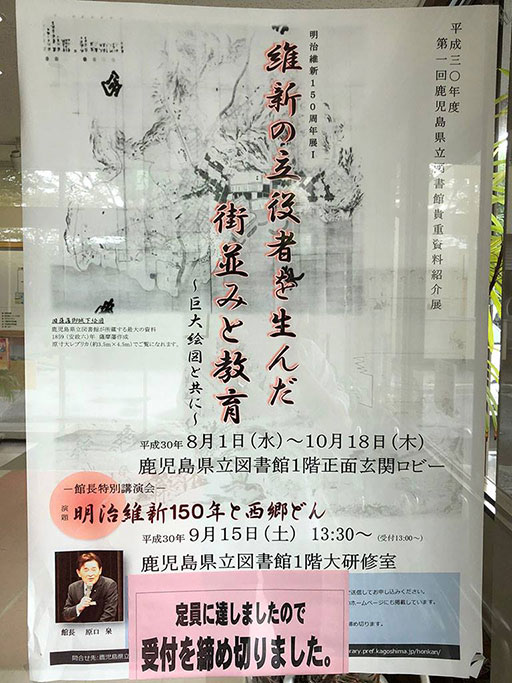 平成三〇年度
第一回鹿児島県立図書館貴重資料紹介展
明治維新150周年展Ⅰ
維新の立役者を生んだ
街並みと教育
～巨大絵図と共に～
旧薩藩御城下絵図
鹿児島県立図書館が所蔵する最大の資料
1859（安政六）年 薩摩藩作成
原寸大レプリカ（約5.5m×4.5m）でご覧になれます。
平成30年 8月1日（水）～10月18日（木）
鹿児島県立図書館1階正面玄関ロビー
－館長特別講演会－
演題 明治維新150年と西郷どん
平成30年 9月15日（土） 13:30～ （受付13:00～）
鹿児島県立図書館1階大研修室
館長 原口 泉
定員に達しましたので
受付を締め切りました。
送信してお申し込みください。
ホームページにも掲載しています。
締め切ります。
問合せ先：鹿児島県立
rary.pref.kagoshima.jp/honkan/